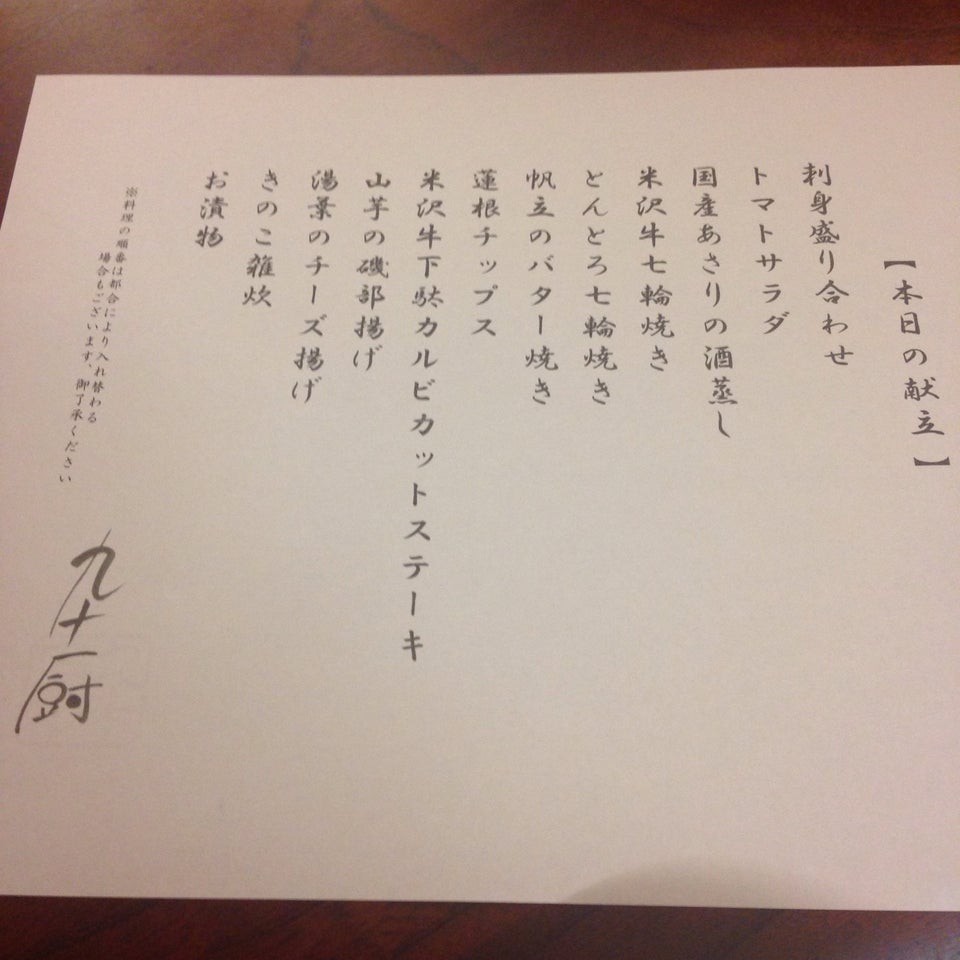 【本日の献立】
刺身盛り合わせ
トマトサラダ
国産あさりの酒蒸し
米沢牛七輪焼き
とんとろ七輪焼き
帆立のバター焼き
蓮根チップス
米沢牛下駄カルビカットステーキ
山芋の磯部揚げ
湯葉のチーズ揚げ
きのこ雑炊
お漬物
※料理の順番は都合により入れ替わる
場合もございます、御了承ください
九十一厨